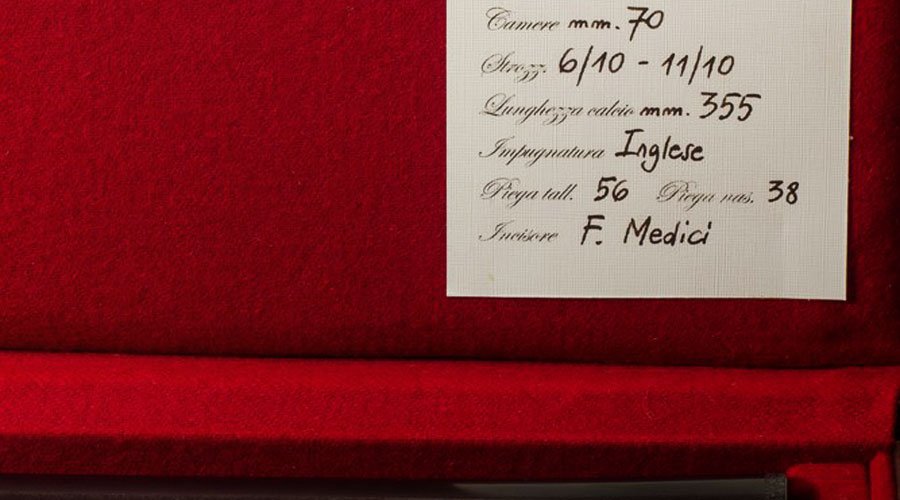 Camere mm. 70
Strozz. 6/10 - 11/10
Lunghezza calcio mm. 355
Impugnatura Inglese
Piega tall. 56 Piega nas. 38
Incisore F. Medici